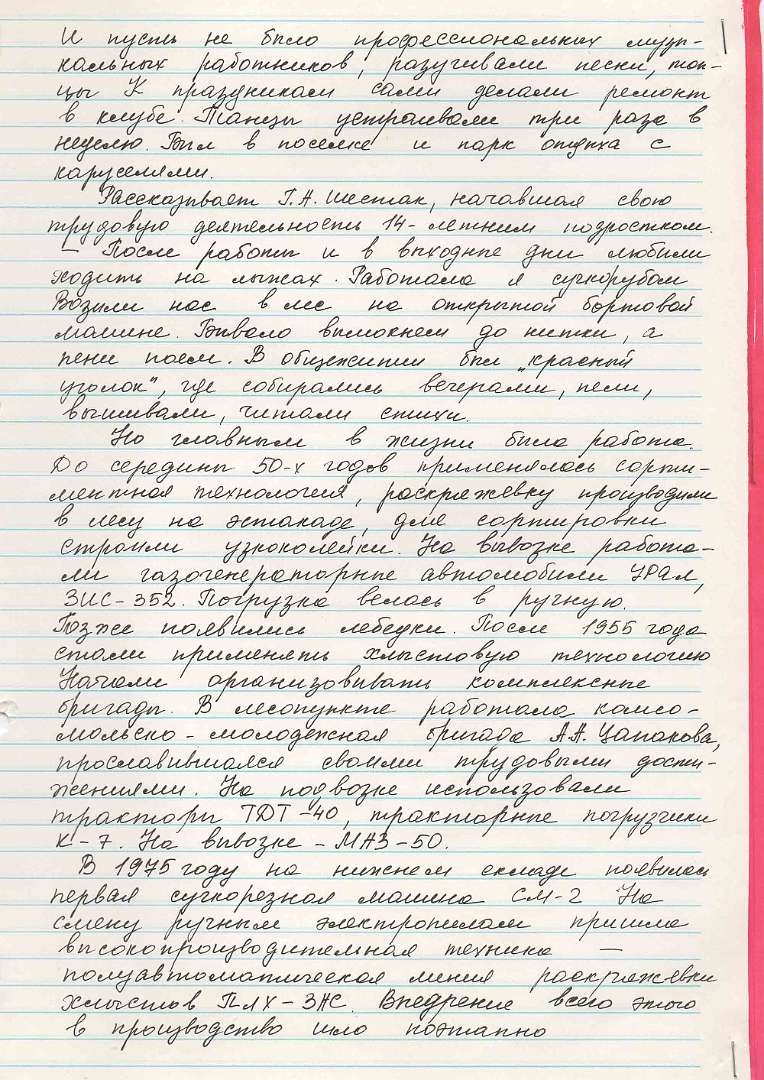 И пусть не было профессиональных музы-
кальных работников, разучивали песни, тан-
цы К праздникам сами делали ремонт
в клубе. Танцы устраивали три раза в
неделю. Был в поселке и парк отдыха с
каруселями.
Рассказывает Г.А. Шестак, начавшая свою
трудовую деятельность 14-летним подростком.
– После работы и в выходные дни любили
ходить на лыжах. Работала я сучкорубом
Возили нас в лес на открытой бортовой
машине. Бывало вымокнем до нитки, а
пени поем. В общежитии был „красный
уголок“, где собирались вечерами, пели,
вышивали, читали стихи.
Но главным в жизни была работа.
До середины 50-х годов применялась сорти-
ментная технология, раскряжевку производили
в лесу на эстакаде, для сортировки
строили узкоколейки. На вывозке работа-
ли газогенераторные автомобили УРАЛ,
ЗИС-352. Погрузка велась в ручную.
Позже появились лебедки. После 1955 года
стали применять хлыстовую технологию
Начали организовывать комплексные
бригады. В лесопункте работала комсо-
мольско-молодежная бригада А.А. Цапакова,
прославившаяся своими трудовыми дости-
жениями. На подвозке использовали
тракторы ТДТ-40, тракторные погрузчики
К-7. На вывозке – МАЗ-50.
В 1975 году на нижнем складе появилась
первая сучкорезная машина СМ-2 На
смену ручным электропилам пришла
высокопроизводительная техника —
полуавтоматическая линия раскряжевки
хлыстов ПЛХ-3АС. Внедрение всего этого
в производство шло поэтапно